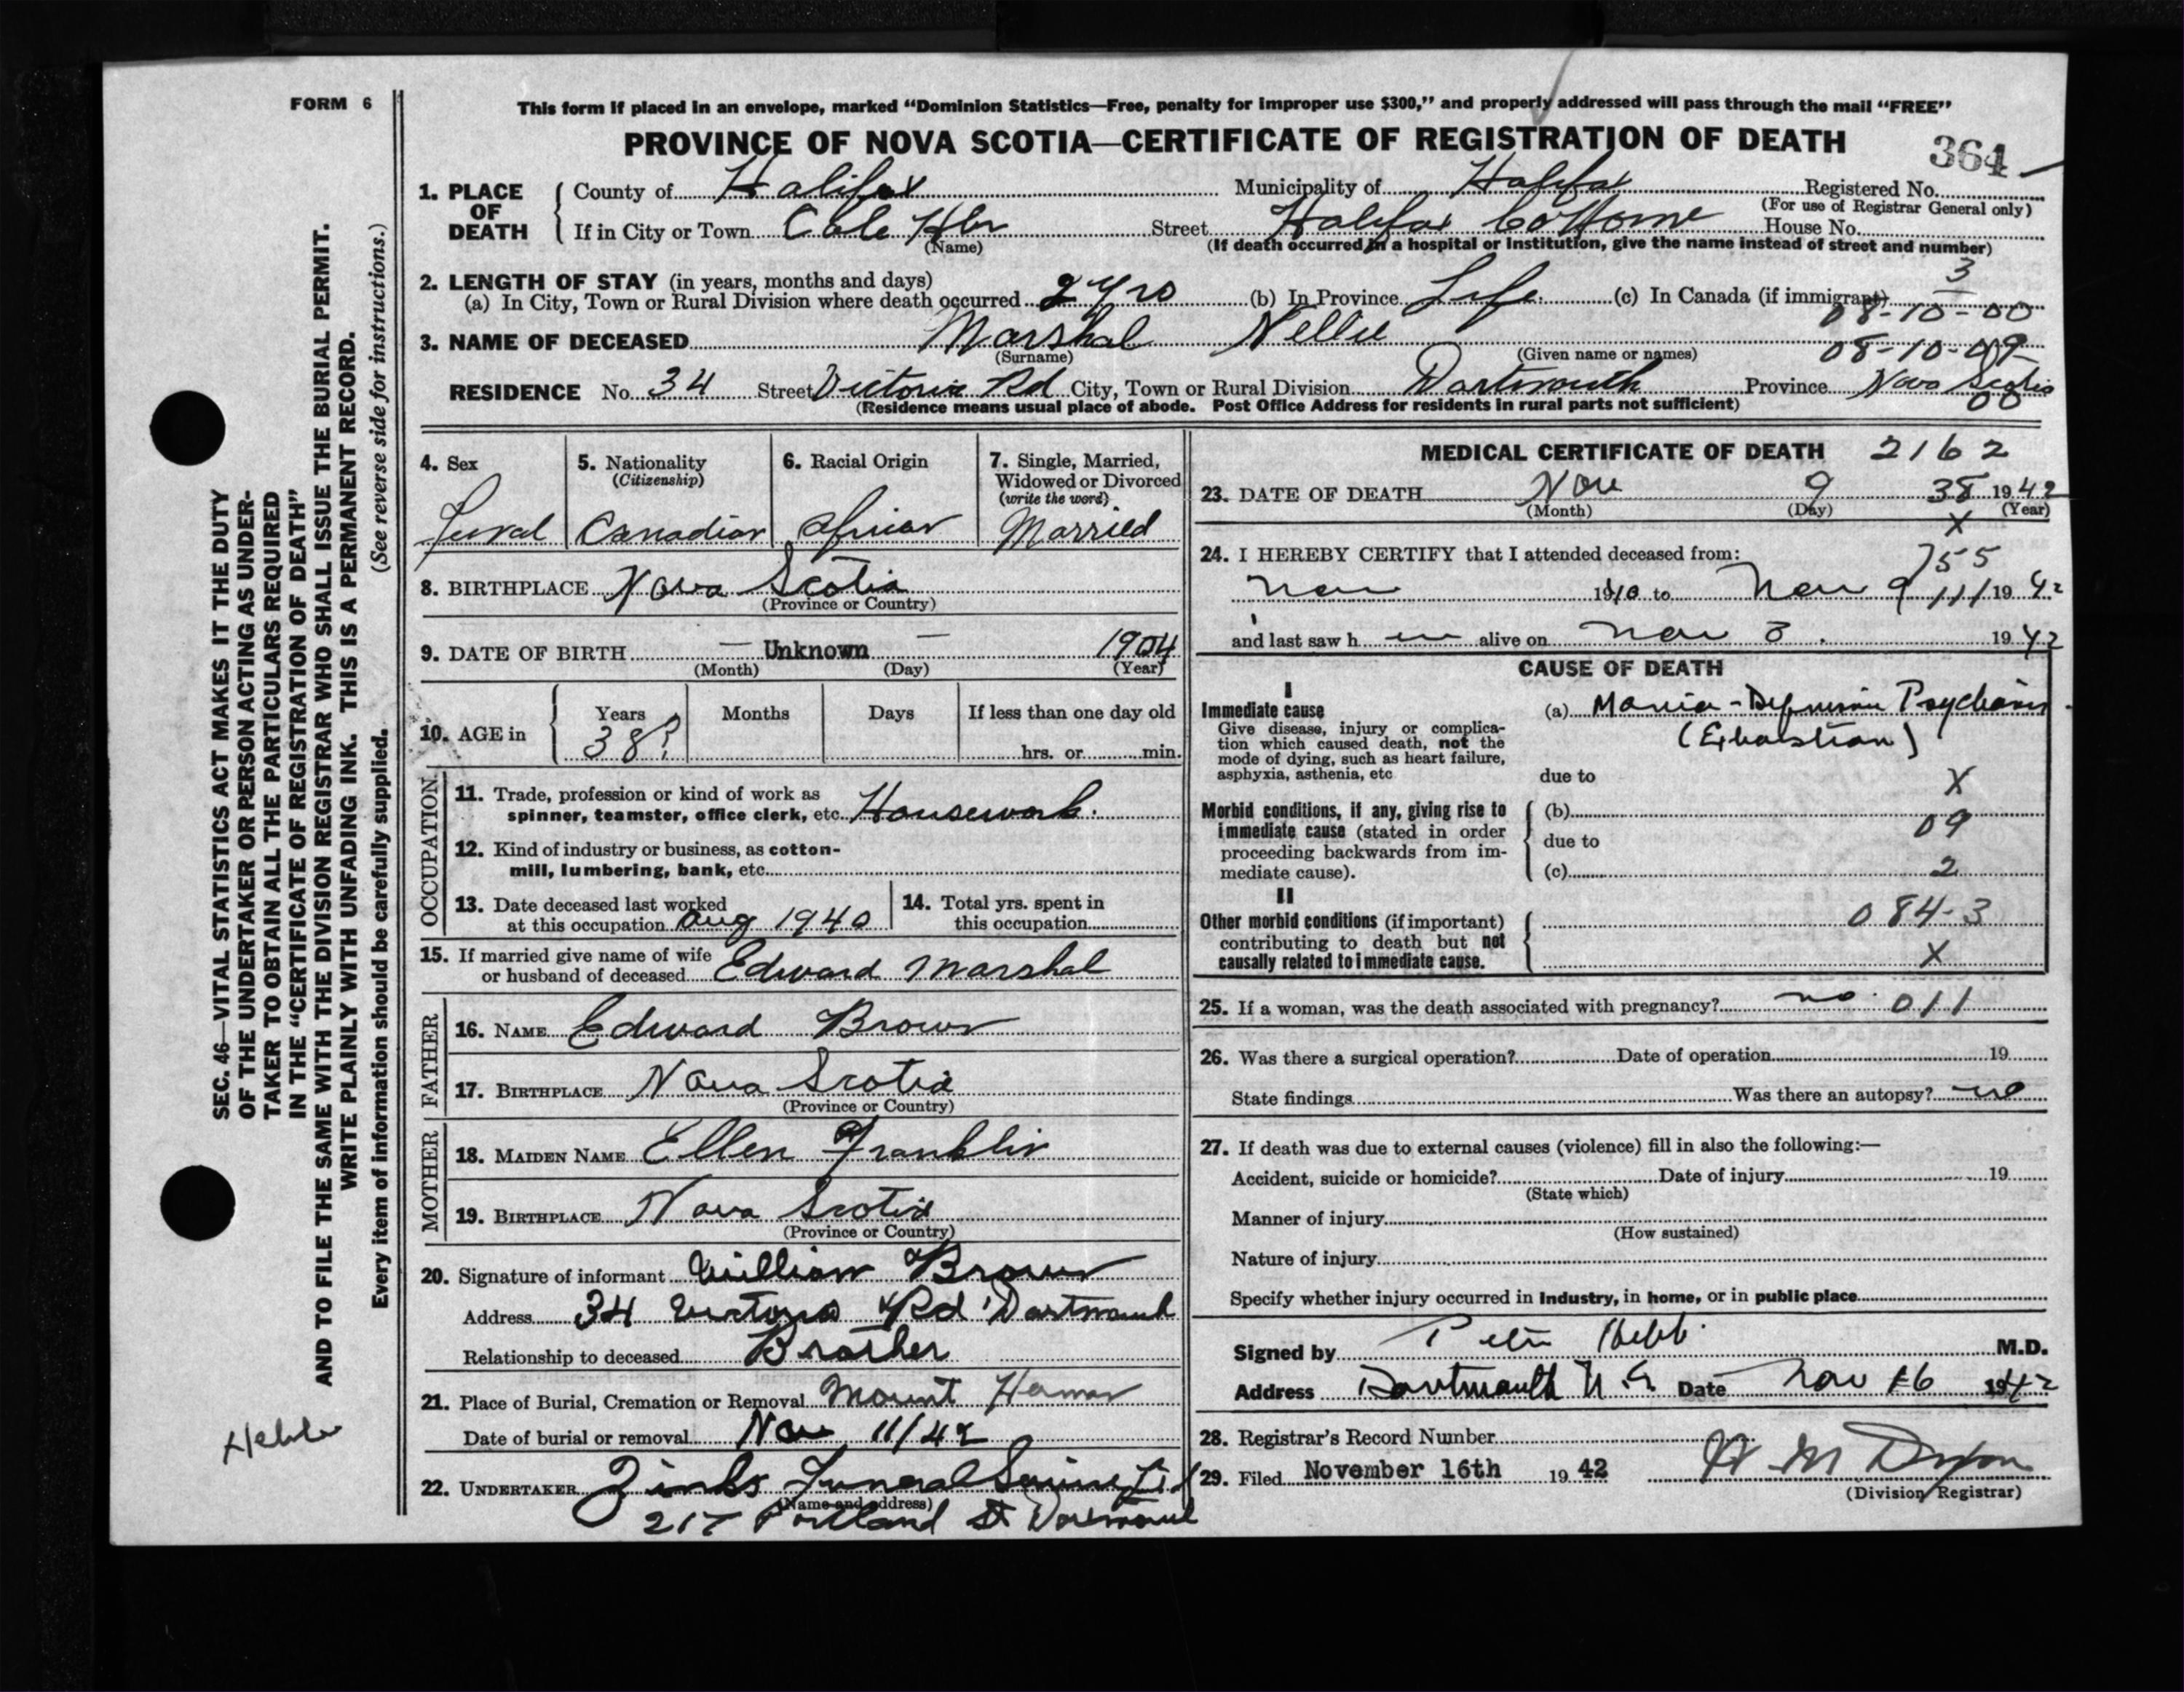 FORM 6
This form if placed in an envelope, marked “Dominion Statistics—Free, penalty for improper use $300,” and properly addressed will pass through the mail “FREE”
PROVINCE OF NOVA SCOTIA—CERTIFICATE OF REGISTRATION OF DEATH
364
1. PLACE OF DEATH
County of Halifax Municipality of Halifax Registered No.
(For use of Registrar General only)
If in City or Town Cole Hbr Street Halifax House No.
(Name) (If death occurred in a hospital or institution, give the name instead of street and number)
3
2. LENGTH OF STAY (in years, months and days)
(a) In City, Town or Rural Division where death occurred 2 yrs (b) In Province Life (c) In Canada (if immigrant)
08-10-00
3. NAME OF DECEASED Marshal Nellie
(Surname) (Given name or names) 08-10-09
RESIDENCE No. 34 Street Victoria Rd City, Town or Rural Division Dartmouth Province Nova Scotia
(Residence means usual place of abode. Post Office Address for residents in rural parts not sufficient) 00
4. Sex
5. Nationality (Citizenship) Canadian
6. Racial Origin African
7. Single, Married, Widowed or Divorced (write the word) Married
8. BIRTHPLACE Nova Scotia
(Province or Country)
9. DATE OF BIRTH — Unknown — 1904
(Month) (Day) (Year)
10. AGE in Years Months Days If less than one day old
38? hrs. or min.
OCCUPATION
11. Trade, profession or kind of work as
spinner, teamster, office clerk, etc. Housework.
12. Kind of industry or business, as cotton-
mill, lumbering, bank, etc.
13. Date deceased last worked
at this occupation Aug 1940
14. Total yrs. spent in
this occupation
15. If married give name of wife
or husband of deceased Edward Marshal
FATHER
16. NAME Edward Brown
17. BIRTHPLACE Nova Scotia
(Province or Country)
MOTHER
18. MAIDEN NAME Ellen Franklin
19. BIRTHPLACE Nova Scotia
(Province or Country)
20. Signature of informant William Brown
Address 34 Victoria Rd Dartmouth
Relationship to deceased Brother
21. Place of Burial, Cremation or Removal Mount Hermon
Date of burial or removal Nov 11/42
22. UNDERTAKER Zinks Funeral Service Ltd
(Name and address)
217 Portland St Dartmouth
MEDICAL CERTIFICATE OF DEATH 2162
23. DATE OF DEATH Nov 9 38 1942
(Month) (Day) (Year)
X
24. I HEREBY CERTIFY that I attended deceased from:
755
Nov 1940 to Nov 9 111 1942
and last saw h alive on Nov 8. 1942
CAUSE OF DEATH
I
Immediate cause
Give disease, injury or complica-
tion which caused death, not the
mode of dying, such as heart failure,
asphyxia, asthenia, etc
(a) Manic-Depressive Psychosis
(Exhaustion)
due to X
Morbid conditions, if any, giving rise to
immediate cause (stated in order
proceeding backwards from im-
mediate cause).
(b)
09
due to
(c) 2
II
Other morbid conditions (if important)
contributing to death but not
causally related to immediate cause.
084-3
X
25. If a woman, was the death associated with pregnancy? no. 011
26. Was there a surgical operation? Date of operation 19
State findings Was there an autopsy? no
27. If death was due to external causes (violence) fill in also the following:—
Accident, suicide or homicide? Date of injury 19
(State which)
Manner of injury
(How sustained)
Nature of injury
Specify whether injury occurred in industry, in home, or in public place
Signed by Peter Hebb M.D.
Address Dartmouth N.S. Date Nov 16 1942
28. Registrar's Record Number
29. Filed November 16th 1942
(Division Registrar)
SEC. 46—VITAL STATISTICS ACT MAKES IT THE DUTY
OF THE UNDERTAKER OR PERSON ACTING AS UNDER-
TAKER TO OBTAIN ALL THE PARTICULARS REQUIRED
IN THE “CERTIFICATE OF REGISTRATION OF DEATH”
AND TO FILE THE SAME WITH THE DIVISION REGISTRAR WHO SHALL ISSUE THE BURIAL PERMIT.
WRITE PLAINLY WITH UNFADING INK. THIS IS A PERMANENT RECORD.
Every item of information should be carefully supplied.
(See reverse side for instructions.)